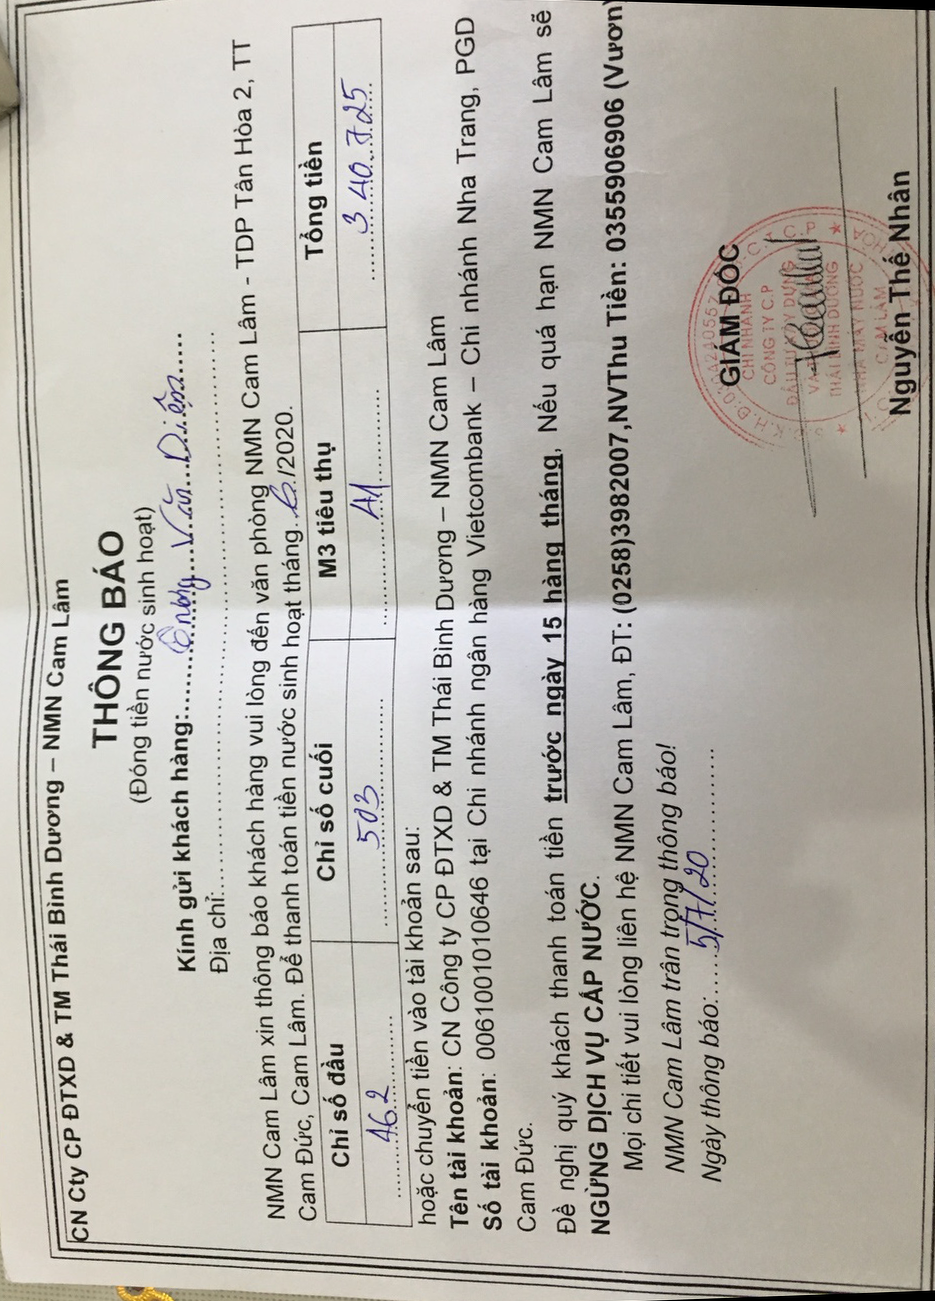 CN Cty CP ĐTXD & TM Thái Bình Dương – NMN Cam Lâm
THÔNG BÁO
(Đóng tiền nước sinh hoạt)
Kính gửi khách hàng:........Ông Văn Diệp.....
Địa chỉ:..........
NMN Cam Lâm xin thông báo khách hàng vui lòng đến văn phòng NMN Cam Lâm - TDP Tân Hòa 2, TT
Cam Đức, Cam Lâm. Để thanh toán tiền nước sinh hoạt tháng 6/2020.
Chỉ số đầu Chỉ số cuối M3 tiêu thụ Tổng tiền
462 503 41 340.725
hoặc chuyển tiền vào tài khoản sau:
Tên tài khoản: CN Công ty CP ĐTXD & TM Thái Bình Dương – NMN Cam Lâm
Số tài khoản: 0061001010646 tại Chi nhánh ngân hàng Vietcombank – Chi nhánh Nha Trang, PGD
Cam Đức.
Đề nghị quý khách thanh toán tiền trước ngày 15 hàng tháng, Nếu quá hạn NMN Cam Lâm sẽ
NGỪNG DỊCH VỤ CẤP NƯỚC.
Mọi chi tiết vui lòng liên hệ NMN Cam Lâm, ĐT: (0258)3982007,NVThu Tiền: 0355906906 (Vươn
NMN Cam Lâm trân trọng thông báo!
Ngày thông báo:.....5/7/20..........
GIÁM ĐỐC
CHI NHÁNH
CÔNG TY C.P
ĐẦU TƯ XÂY DỰNG
THÁI BÌNH DƯƠNG
NHÀ MÁY NƯỚC
CAM LÂM
Nguyễn Thế Nhân